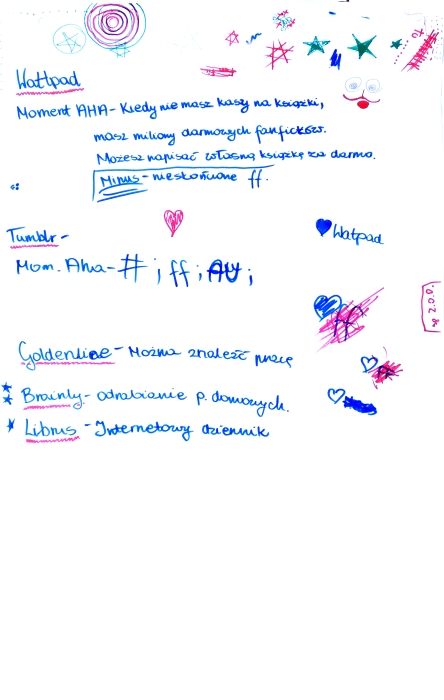 Wattpad
Moment AHA - Kiedy nie masz kasy na książki,
masz miliony darmowych fanficków.
Możesz napisać własną książkę za darmo.
Minus - nieskończone ff.
Tumblr -
Watpad
Mom. Aha - # ; ff ; AU ;
Goldenline - Można znaleźć pracę
Brainly - odrabianie p. domowych.
Librus - Internetowy dziennik